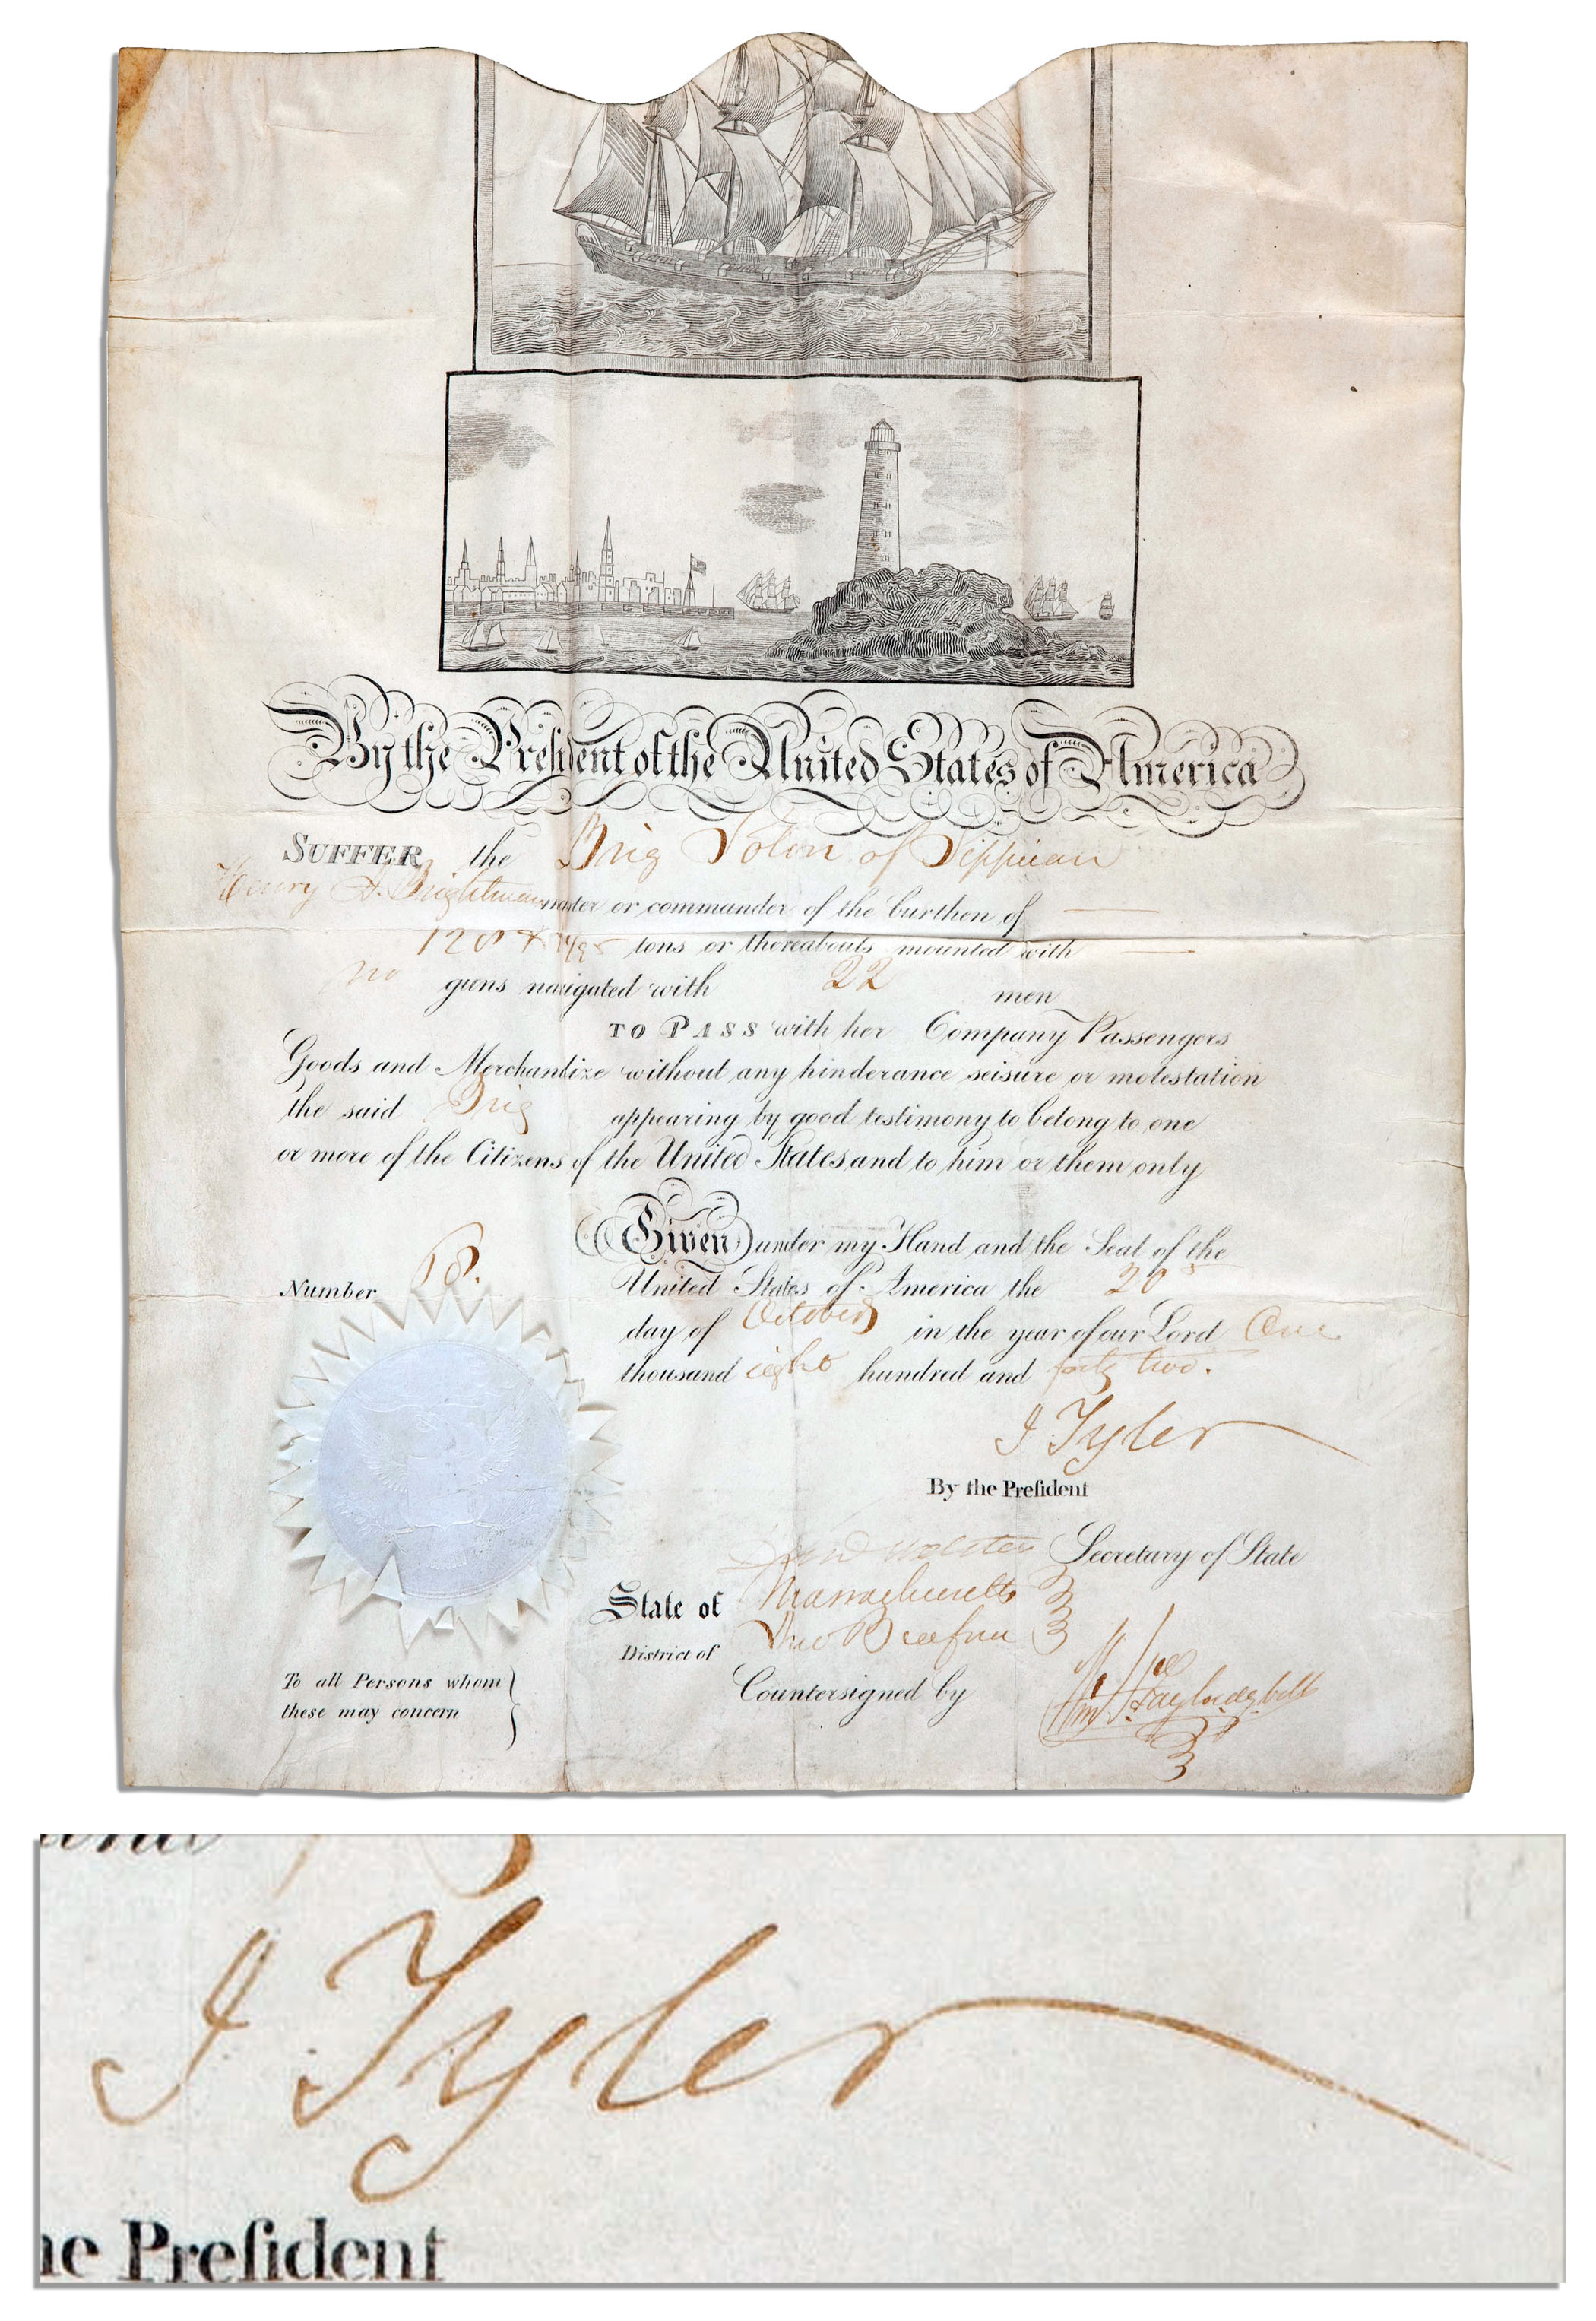 By the President of the United States of America
SUFFER the Brig Solon of Sippican
Henry S. Brightman master or commander of the burthen of
128 tons or thereabouts mounted with
no guns navigated with 22 men
TO PASS with her Company Passengers
Goods and Merchandize without any hinderance seisure or molestation
the said Brig appearing by good testimony to belong to one
or more of the Citizens of the United States and to him or them only
Given under my Hand and the Seal of the
United States of America the 20
day of October in the year of our Lord One
thousand eight hundred and forty two.
Number 18.
J Tyler
By the Preſident
Secretary of State
State of Massachusetts
District of
Countersigned by
To all Persons whom
these may concern
J Tyler
he Preſident